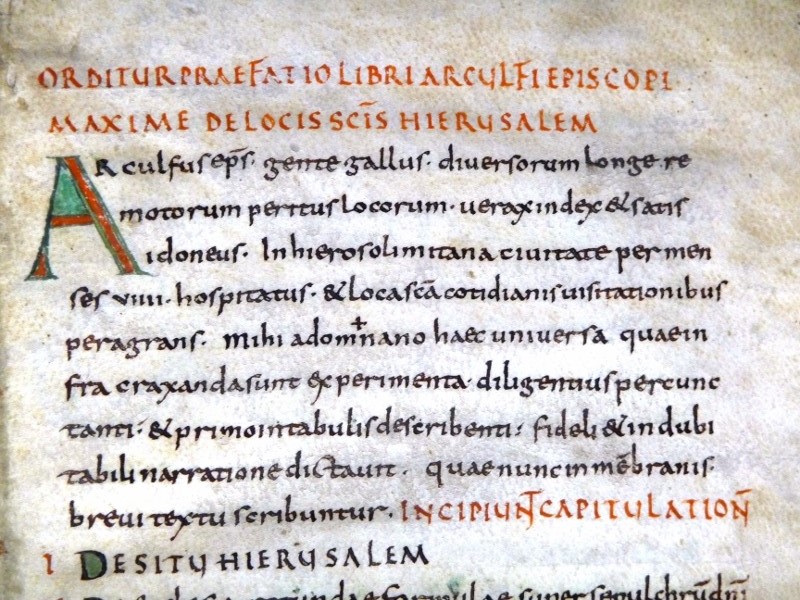 ORDITUR PRAEFATIO LIBRI ARCULFI EPISCOPI
MAXIME DE LOCIS SCIS HIERUSALEM
ARculfus eps· gente gallus· diversorum longe re
motorum peritus locorum· verax index & satis
idoneus· In hierosolimitana civitate per men
ses viiii· hospitatus· & loca sca cotidianis visitationibus
peragrans· Mihi adomnano haec universa quae in
fra craxanda sunt experimenta diligentius percunc
tanti· & primo in tabulis describenti· fideli & indubi
tabili narratione dictavit· quae nunc in mebranis·
brevi textu scribuntur· INCIPIUNT CAPITULATION
I DE SITU HIERUSALEM